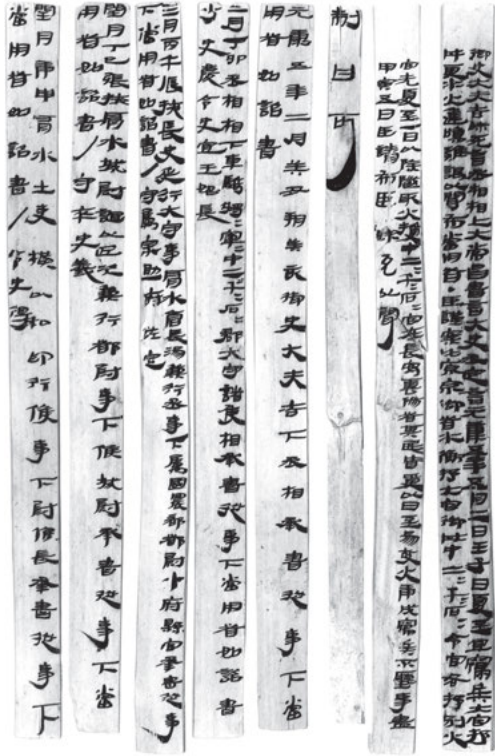 御史大夫吉昧死言丞相相上大常昌書言大史丞定言元康五年五月二日壬子日夏至宜寢兵大官抒
井更水火進鳴雞謁以聞布當用者●臣謹案比原宗御者水衡抒大官御井中二=千=石=令官各抒別火
官先夏至一日以除隧取火授中二=千=石=官在長安雲陽者其民皆受以日至易故火庚戌寢兵不聽事盡
甲寅五日臣請布臣昧死以聞
制曰可
元康五年二月癸丑朔癸亥御史大夫吉下丞相承書從事下當
用者如詔書
二月丁卯丞相相下車騎將=軍=中二=千=石=郡大守諸侯相承書從事下當用者如詔書
少史慶令史宜王始長
三月丙午張掖長史延行大守事肩水倉長湯兼行丞事下屬國農部都尉小府縣官承書從事
下當用者如詔書/守屬宗助府佐定
閏月丁巳張掖肩水城尉誼以近次兼行都尉事下候城尉承書從事下當
用者如詔書/守卒史義
閏月庚申肩水士吏橫以私印行候事下尉候長承書從事下
當用者如詔書/令史得